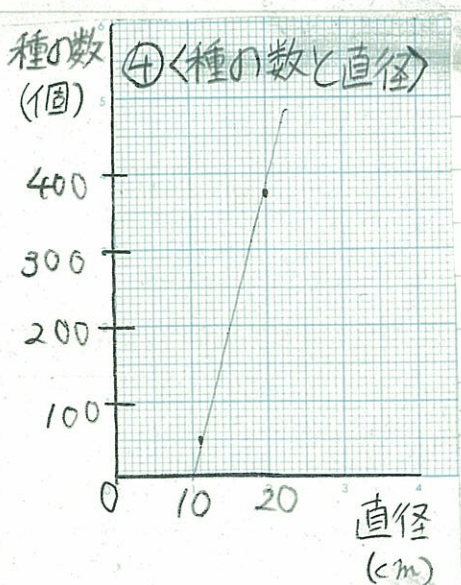 種の数
(個)
④〈種の数と直径〉
400
300
200
100
0
10
20
直径
(cm)
6
5
3
4